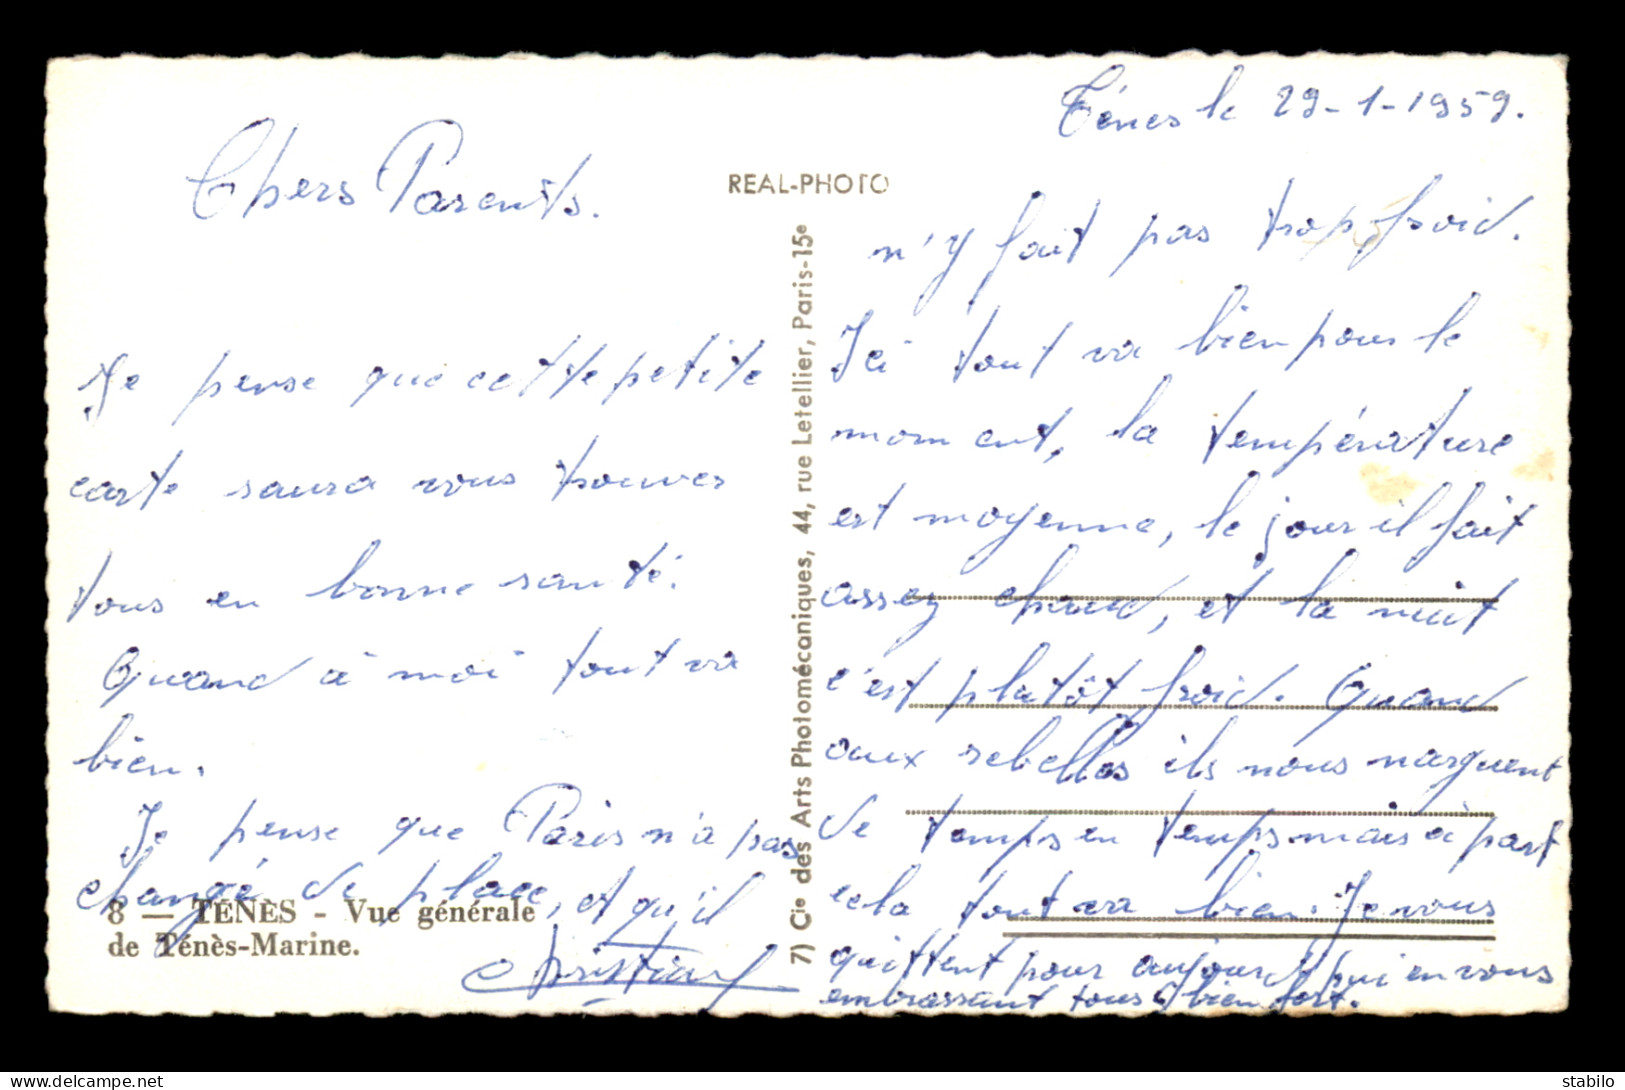 Ténès le 29-1-1959.
Chers Parents.
REAL-PHOTO
Je pense que cette petite
carte saura vous trouver
tous en bonne santé.
Quand à moi tout va
bien.
Je pense que Paris n'a pas
changé de place, et qu'il
8 — TÉNÈS - Vue générale
de Ténès-Marine.
Christian
7) Cie des Arts Photomécaniques, 44, rue Letellier, Paris-15e
n'y fait pas trop froid.
Ici tout va bien pour le
moment, la température
est moyenne, le jour il fait
assez chaud, et la nuit
c'est plutôt froid. Quand
aux rebelles ils nous narguent
de temps en temps mais à part
cela tout va bien. Je vous
quittent pour aujourd'hui en vous
embrassant tous bien fort.
delcampe.net
stabilo